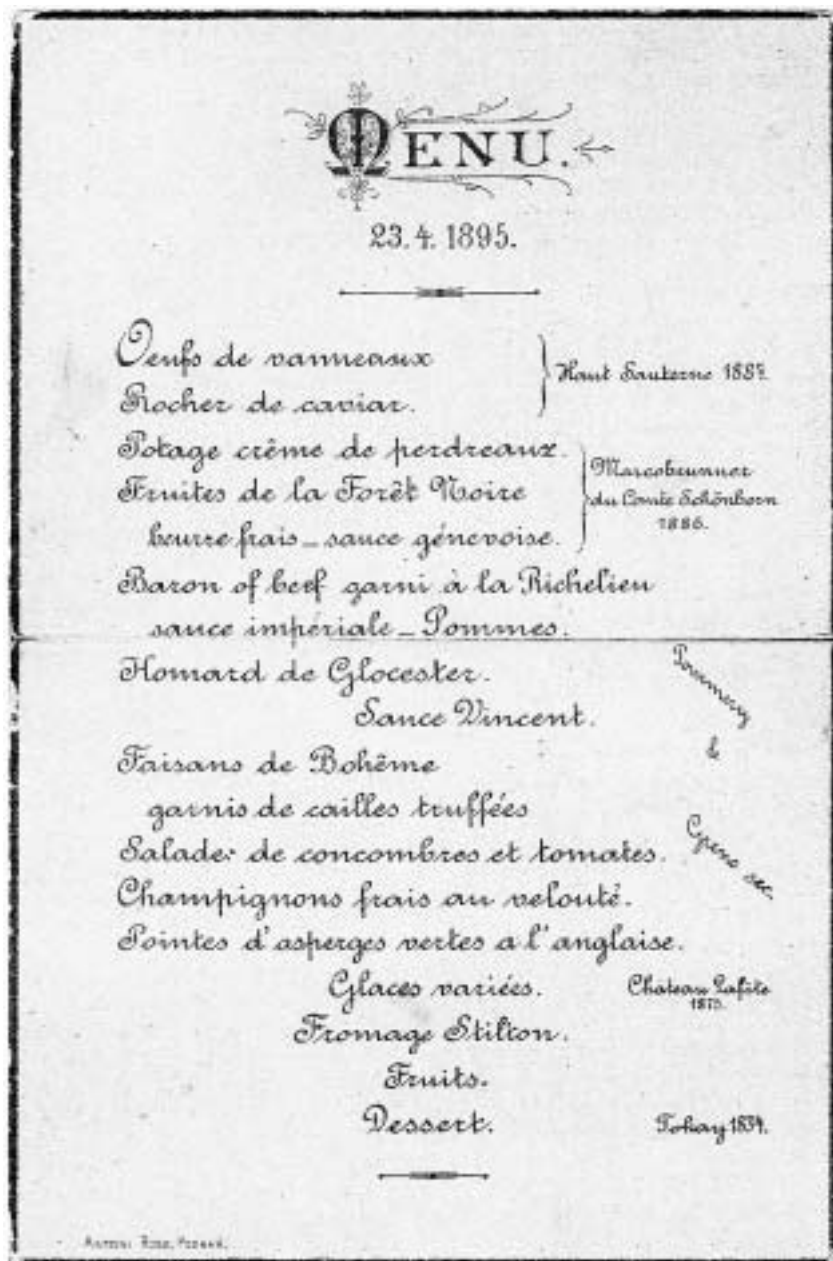 MENU.
23.4.1895.
Oenfs de vanneaux
Rocher de caviar.
Haut Sauterne 1887.
Potage crême de perdreaux.
Fruites de la Forêt Noire
beurre frais _ sauce génevoise.
Marcobrunner
du Comte Schönborn
1886.
Baron of beef garni à la Richelieu
sauce impériale _ Pommes.
Homard de Glocester.
Sance Vincent.
Pommery
&
Greno sec.
Faisans de Bohême
garnis de cailles truffées
Salade: de concombres et tomates.
Champignons frais au velouté.
Pointes d'asperges vertes a l'anglaise.
Glaces variées.
Château Lafite
1875.
Fromage Stilton.
Fruits.
Dessert.
Tokay 1834.
ANTONI ROSE, POZNAŃ.